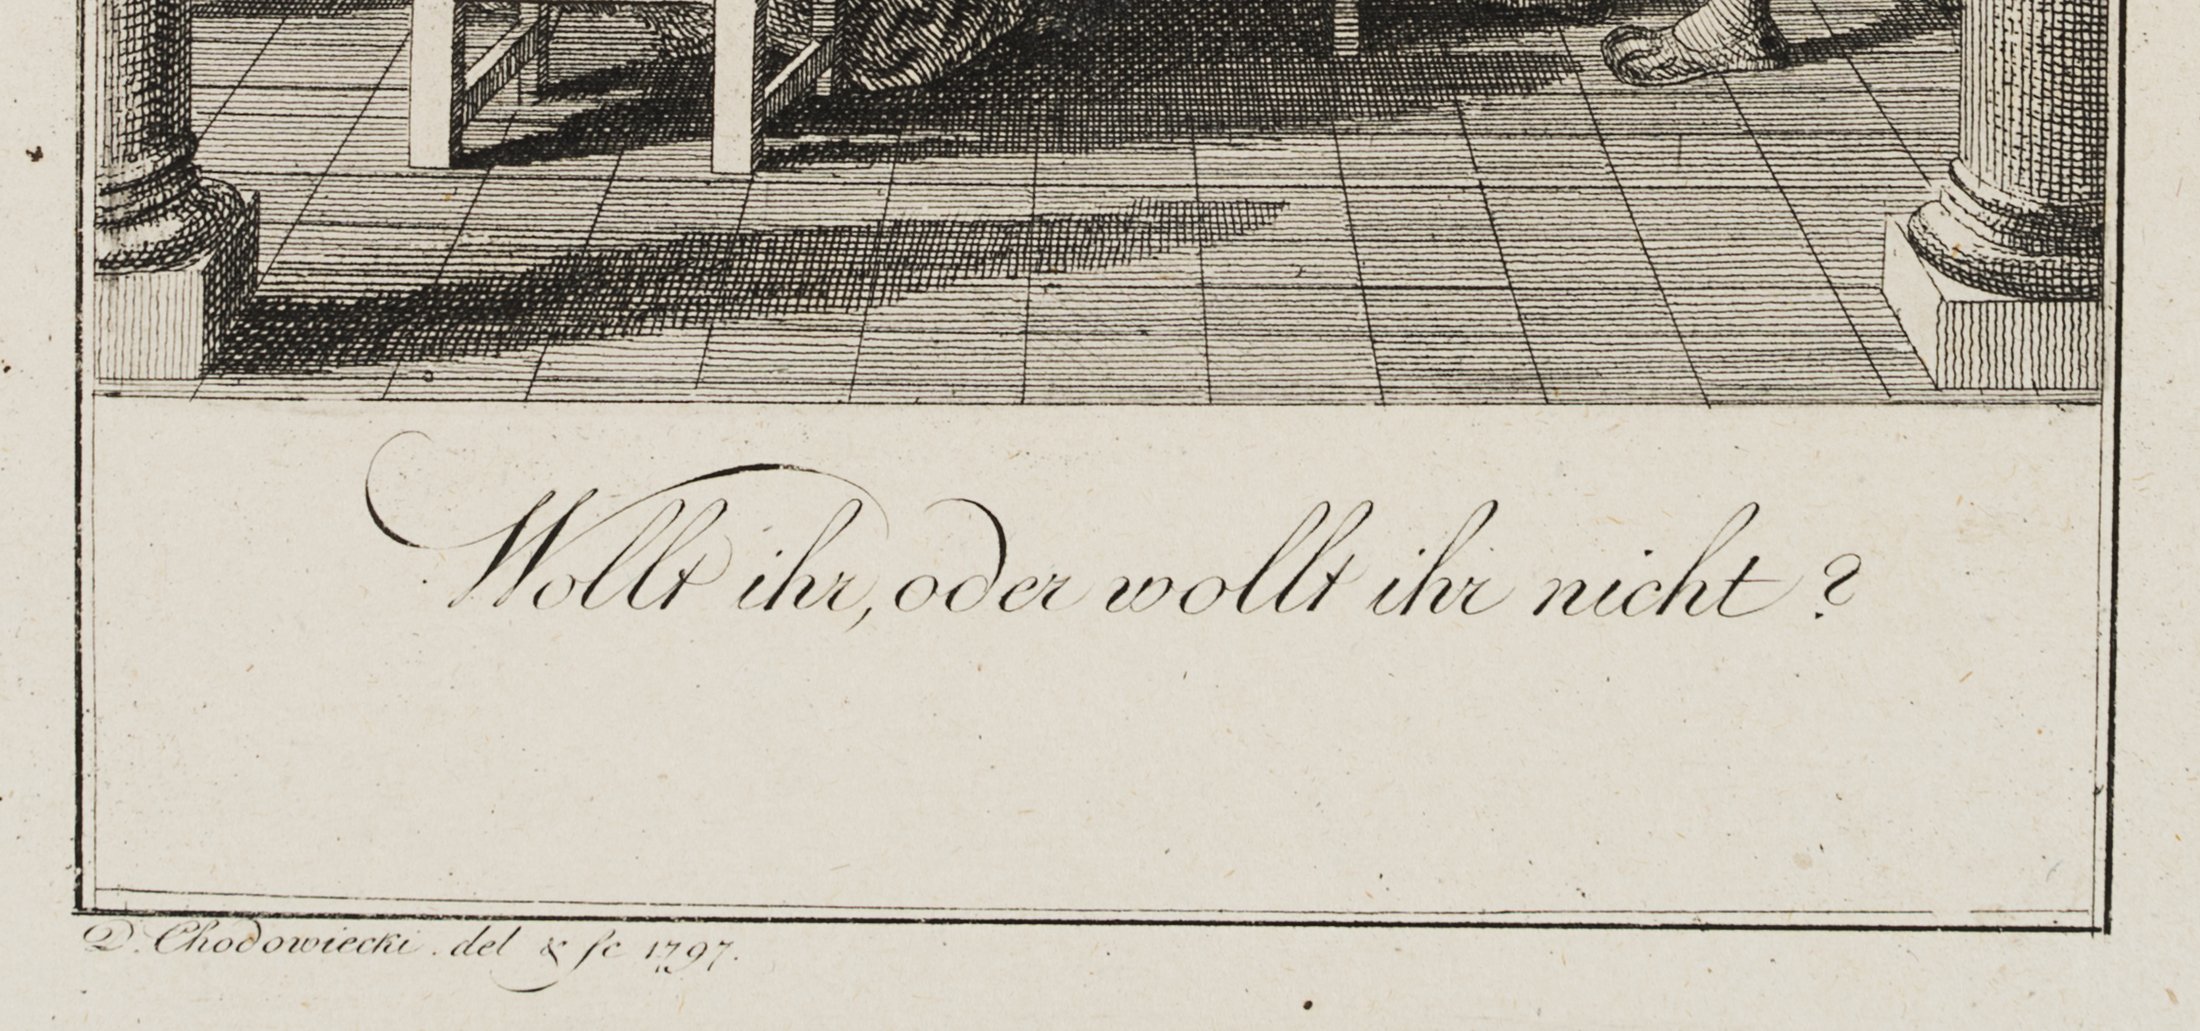 Wollt ihr, oder wollt ihr nicht?
D. Chodowiecki. del & sc 1797.